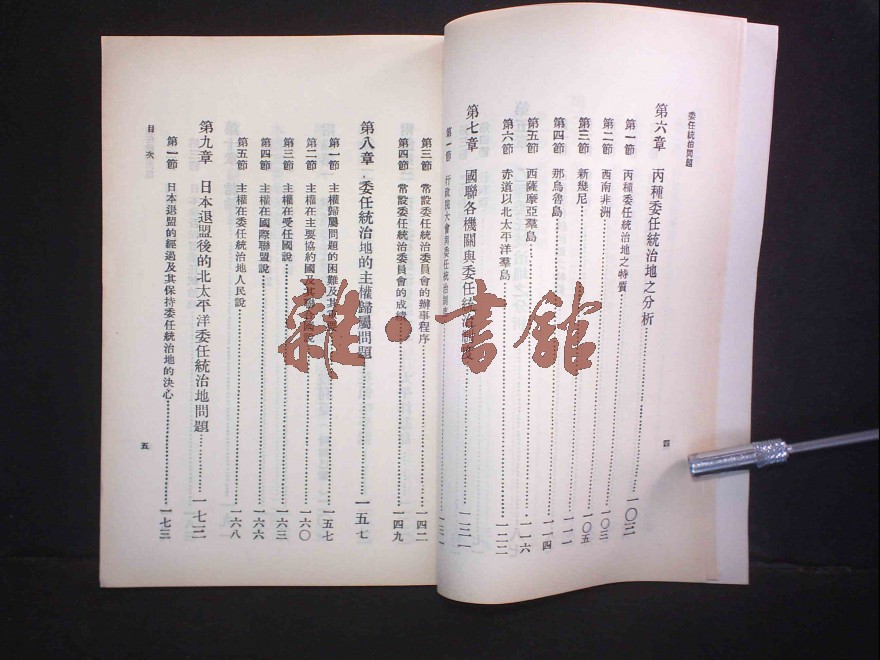 委任統治問題
第六章 丙種委任統治地之分析……一〇三
第一節 丙種委任統治地之特質……一〇三
第二節 西南非洲……一〇五
第三節 新幾尼……一一一
第四節 那烏魯島……一一四
第五節 西薩摩亞羣島……一一六
第六節 赤道以北太平洋羣島……一二二
第七章 國聯各機關與委任統治制度……一三一
第一節 行政院大會與委任統治制度……一三一
四
第三節 常設委任統治委員會的辦事程序……一四二
第四節 常設委任統治委員會的成績……一四九
第八章 委任統治地的主權歸屬問題……一五七
第一節 主權歸屬問題的困難及其重要……一五七
第二節 主權在主要協約國及其聯合國說……一六〇
第三節 主權在受任國說……一六三
第四節 主權在國際聯盟說……一六六
第五節 主權在委任統治地人民說……一六八
第九章 日本退盟後的北太平洋委任統治地問題……一七三
第一節 日本退盟的經過及其保持委任統治地的決心……一七三
目次
五
雜·書館